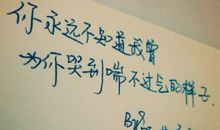 你永远不知道我曾
为你哭到喘不过气的样子
By